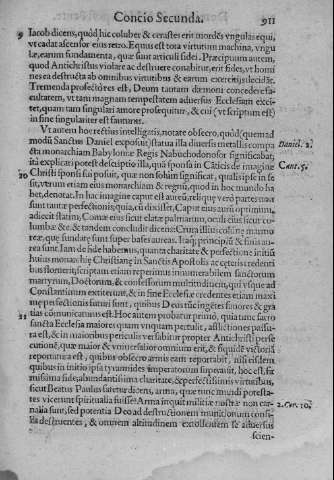 Concio Secunda. 911
9 Iacob dicens, quòd hic coluber & cerastes erit mordēs vngulas equi,
vt cadat ascensor eius retro. Equus est tota virtutum machina, vngu
læ, earum fundamenta, quæ sunt articuli fidei. Præcipuum autem,
quod Antichristus violare ac destruere conabitur, erit fides, vt homi
nes ea destructa ab omnibus virtutibus & earum exercitijs decidāt.
Tremenda profectò res est, Deum tantam dæmoni concedere fa-
cultatem, vt tam magnam tempestatem aduersus Ecclesiam exci-
tet, quam tam singulari amore prosequitur, & cui (vt scriptum est)
in fine singulariter est fauturus.
Vt autem hoc rectius intelligatis, notate obsecro, quòd (quemad
modū Sanctus Daniel exposuit) statua illa diuersis metallis compa
cta monarchiam Babyloniæ Regis Nabuchodonosor significabat;
Daniel. 2.
ità explicari potest descriptio illa, quā sponsa in Cāticis de imagine
Cant. 5.
10 Christi sponsi sui posuit, quæ non solùm significat, qualis ipse in se
sit, verùm etiam eius monarchiam & regnū, quod in hoc mundo ha
bet, denotat. In hac imagine caput est aureū, reliquę verò partes non
sunt tantæ perfectionis, quia, cū dixisset, Caput eius aurū optimum,
adiecit statim; Comæ eius sicut elatæ palmarum, oculi eius sicut co-
lumbæ &c. & tandem concludit dicens: Crura illius colūnę marmo
reæ, quę fundatę sunt super bases aureas. Itaq; principiū & finis au-
rea sunt. Iam de fide habemus, quanta charitate & perfectione initiū
huius monarchię Christianę in Sanctis Apostolis ac ceteris credenti
bus floruerit, scriptam etiam reperimus innumerabilem sanctorum
martyrum, Doctorum, & confessorum multitudinem, qui vsque ad
Constantinum extiterunt, & in fine Ecclesiæ credentes etiam maxi
mę perfectionis futuri sunt, quibus Deus sui ingētes fauores & gra
tias cōmunicaturus est. Hoc autem probatur primò, quia tunc sacro
11 sancta Ecclesia maiores quàm vnquam pertulit, afflictiones passu-
ra est, & in maioribus periculis versabitur propter Antichristi perse
cutionē, quæ maior & vniuersalior omnium erit, & siquidē victoriā
reportatura est, quibus obsecro armis eam reportabit, nisi eisdem
quibus in initio ipsa tyrannides imperatorum superauit, hoc est, fir
missima fide, abundantissima charitate, & perfectissimis virtutibus,
sicut Beatus Paulus fatetur dicens, arma, quæ tunc mundi potesta-
tes vicerunt spiritualia fuisse: Arma inquit militiæ nostræ non car-
2. Cor. 10.
nalia sunt, sed potentia Deo ad destructionem munitionum consi-
lia destruentes, & omnem altitudinem extollentem se aduersus
scien-